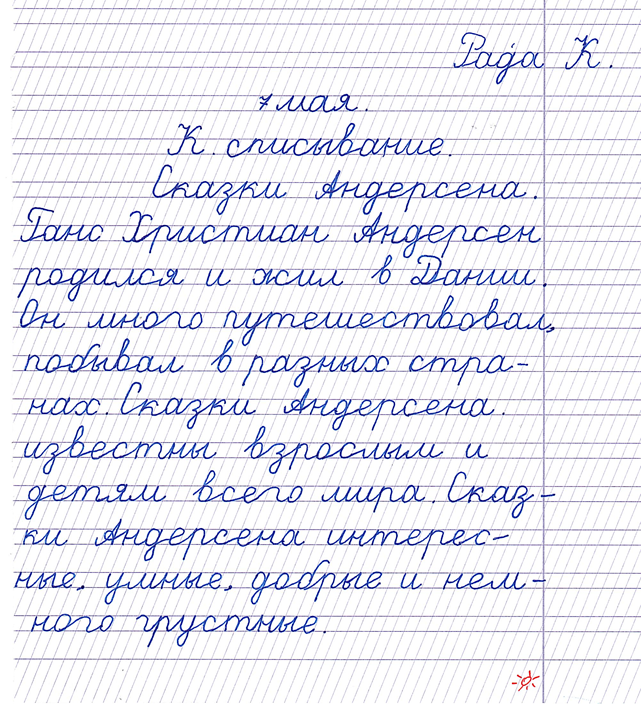 Рада К.
7 мая.
К. списывание.
Сказки Андерсена.
Ганс Христиан Андерсен
родился и жил в Дании.
Он много путешествовал,
побывал в разных стра-
нах. Сказки Андерсена.
известны взрослым и
детям всего мира. Сказ-
ки Андерсена интерес-
ные, умные, добрые и нем-
ного грустные.